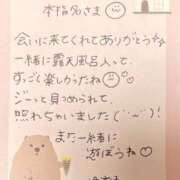 本指名さま
会いに来てくれてありがとう
一緒に露天風呂入って、
すっごく楽しかったね
ジーッと見つめられて
照れちゃいました(˘ω˘)
また一緒に
遊ぼうね♡